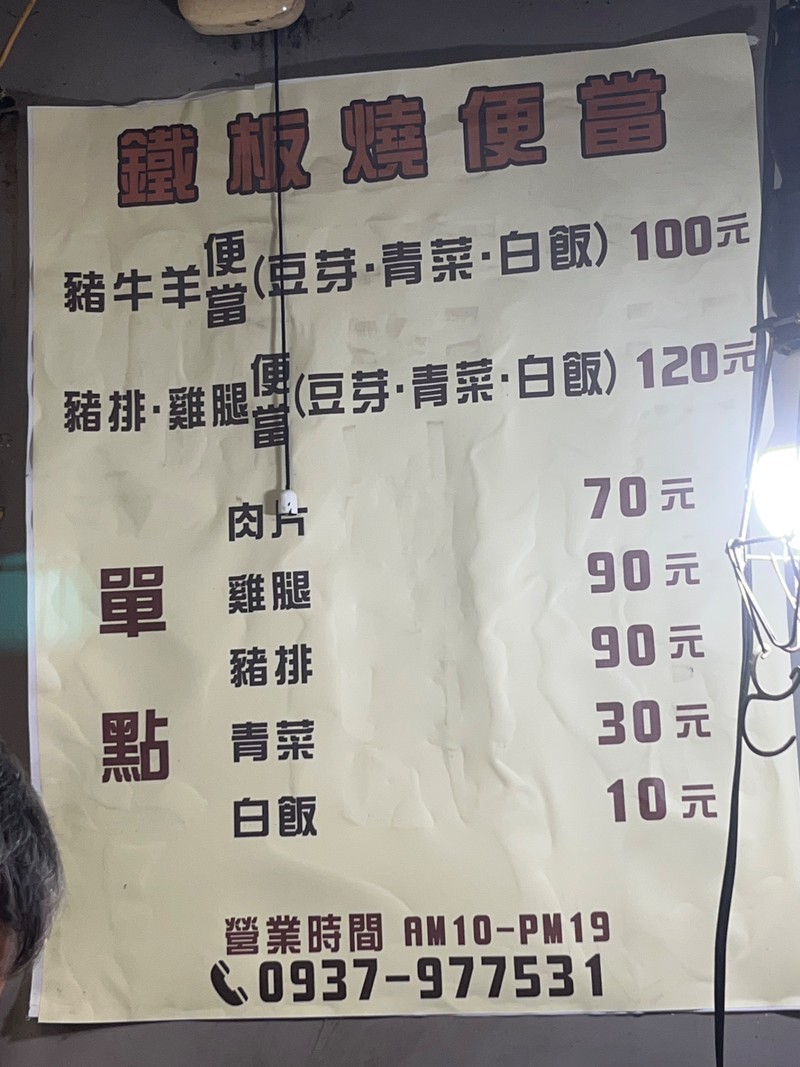 鐵板燒便當
豬牛羊便當(豆芽·青菜·白飯) 100元
豬排·雞腿便當(豆芽·青菜·白飯) 120元
單點
肉片 70元
雞腿 90元
豬排 90元
青菜 30元
白飯 10元
營業時間 AM10-PM19
0937-977531